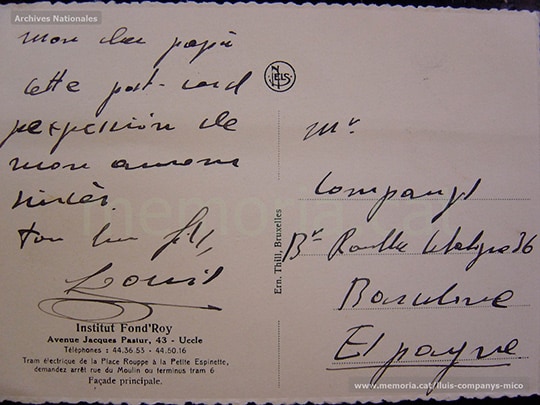 Archives Nationales
mon cher papà
cette post-card
expression de
mon amour
ton fils,
Louis
Institut Fond'Roy
Avenue Jacques Pastur, 43 - Uccle
Téléphones : 44.36.53 - 44.50.16
Tram électrique de la Place Rouppe à la Petite Espinette,
demandez arrêt rue du Moulin ou terminus tram 6
Façade principale.
NELS
Ern. Thill, Bruxelles
Mr
Companys
36
Barcelone
Espagne
memoria.cat
www.memoria.cat/lluis-companys-mico